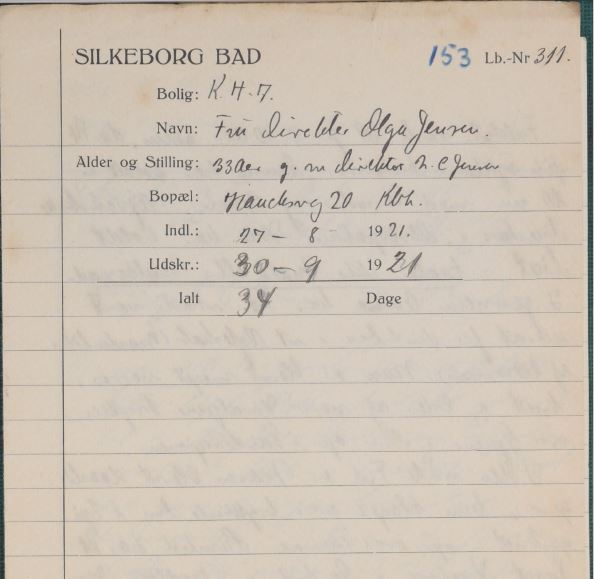 SILKEBORG BAD 153 Lb.-Nr 311.
Bolig: K. H. 7.
Navn: Fru direktør Olga Jensen.
Alder og Stilling: 33 Aar g. m direktør C Jensen
Bopæl: 20 Kbh.
Indl.: 27 - 8 1921.
Udskr.: 30 - 9 1921
Ialt 34 Dage